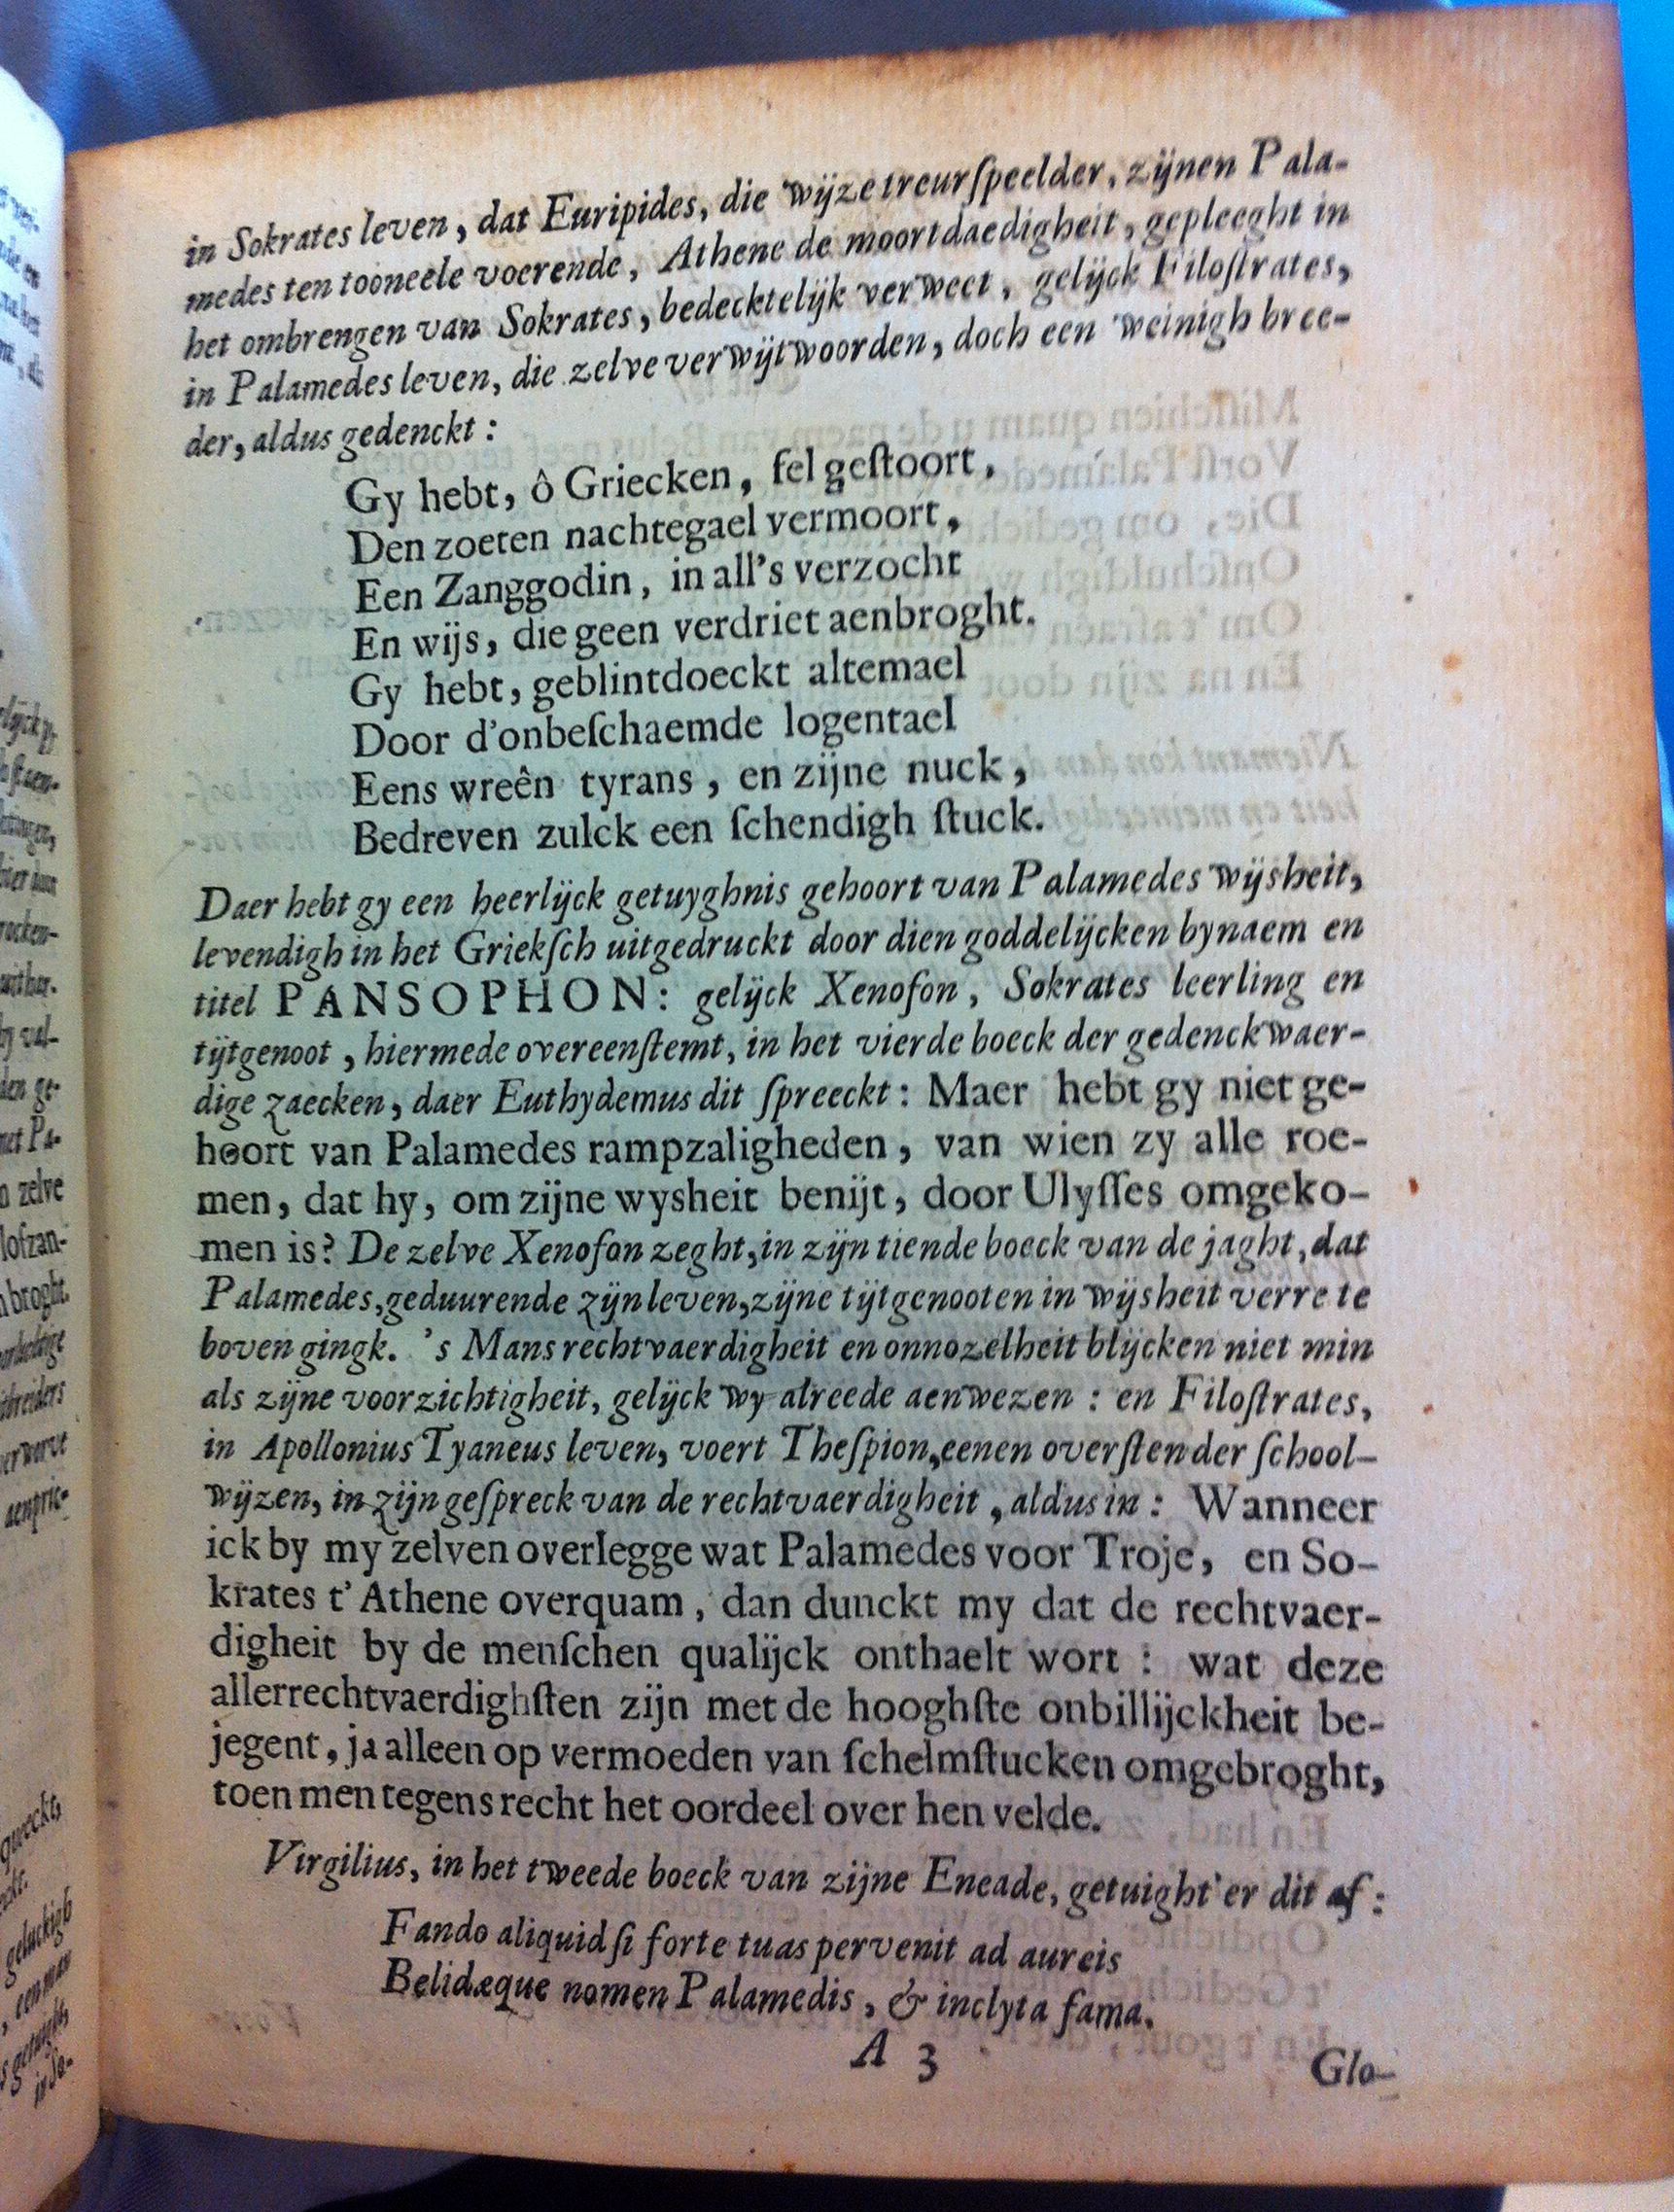 in Sokrates leven, dat Euripides, die wijze treurſpeelder, zijnen Pala-
medes ten tooneele voerende, Athene de moortdaedigheit, gepleeght in
het ombrengen van Sokrates, bedecktelijk verweet, gelijck Filoſtrates,
in Palamedes leven, die zelve verwijtwoorden, doch een weinigh bree-
der, aldus gedenckt:
Gy hebt, ô Griecken, fel geſtoort,
Den zoeten nachtegael vermoort,
Een Zanggodin, in all's verzocht
En wijs, die geen verdriet aenbroght.
Gy hebt, geblintdoeckt altemael
Door d'onbeſchaemde logentael
Eens wreên tyrans, en zijne nuck,
Bedreven zulck een ſchendigh ſtuck.
Daer hebt gy een heerlijck getuyghnis gehoort van Palamedes wijsheit,
levendigh in het Griekſch uitgedruckt door dien goddelijcken bynaem en
titel PANSOPHON: gelijck Xenofon, Sokrates leerling en
tijtgenoot, hiermede overeenſtemt, in het vierde boeck der gedenckwaer-
dige zaecken, daer Euthydemus dit ſpreeckt: Maer hebt gy niet ge-
hoort van Palamedes rampzaligheden, van wien zy alle roe-
men, dat hy, om zijne wysheit benijt, door Ulyſſes omgeko-
men is? De zelve Xenofon zeght, in zijn tiende boeck van de jaght, dat
Palamedes, geduurende zijn leven, zijne tijtgenooten in wijsheit verre te
boven gingk. 's Mans rechtvaerdigheit en onnozelheit blijcken niet min
als zijne voorzichtigheit, gelijck wy alreede aenwezen: en Filoſtrates,
in Apollonius Tyaneus leven, voert Theſpion, eenen overſten der ſchool-
wijzen, in zijn geſpreck van de rechtvaerdigheit, aldus in: Wanneer
ick by my zelven overlegge wat Palamedes voor Troje, en So-
krates t'Athene overquam, dan dunckt my dat de rechtvaer-
digheit by de menſchen qualijck onthaelt wort: wat deze
allerrechtvaerdighſten zijn met de hooghſte onbillijckheit be-
jegent, ja alleen op vermoeden van ſchelmſtucken omgebroght,
toen men tegens recht het oordeel over hen velde.
Virgilius, in het tweede boeck van zijne Eneade, getuight'er dit af:
Fando aliquid ſi forte tuas pervenit ad aureis
Belidæque nomen Palamedis, & inclyta fama.
A 3
Glo-